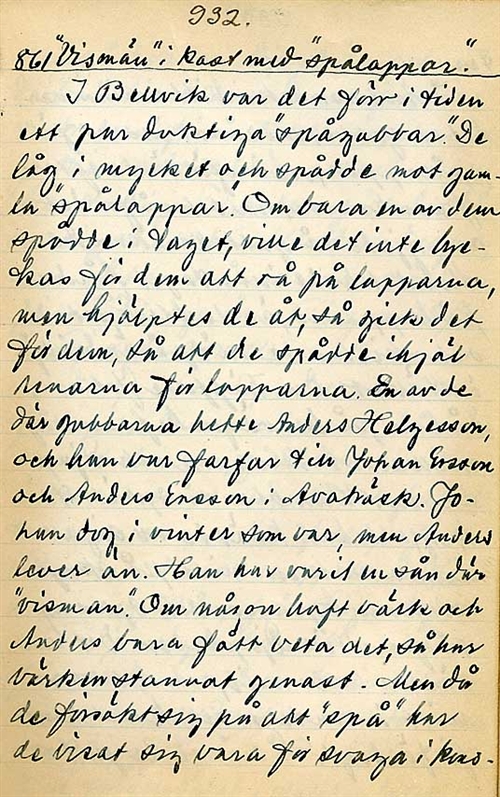 932.
861 "Vismän" i kast med "spålappar."
I Bellvik var det förr i tiden
ett par duktiga "spågubbar." De
låg i mycket och spådde mot gam-
la "spålappar." Om bara en av dem
spådde i taget, ville det inte lyc-
kas för dem att rå på lapparna,
men hjälptes de åt, så gick det
för dem, så att de spådde ihjäl
renarna för lapparna. En av de
där gubbarna hette Anders Helgesson,
och han var farfar till Johan Ersson
och Anders Ersson i Avaträsk. Jo-
han dog i vinter som var, men Anders
lever än. Han har varit en sån där
"visman." Om någon haft värk och
Anders bara fått veta det, så har
värken stannat genast. Men då
de försökt sig på att "spå" har
de visat sig vara för svaga i kons-